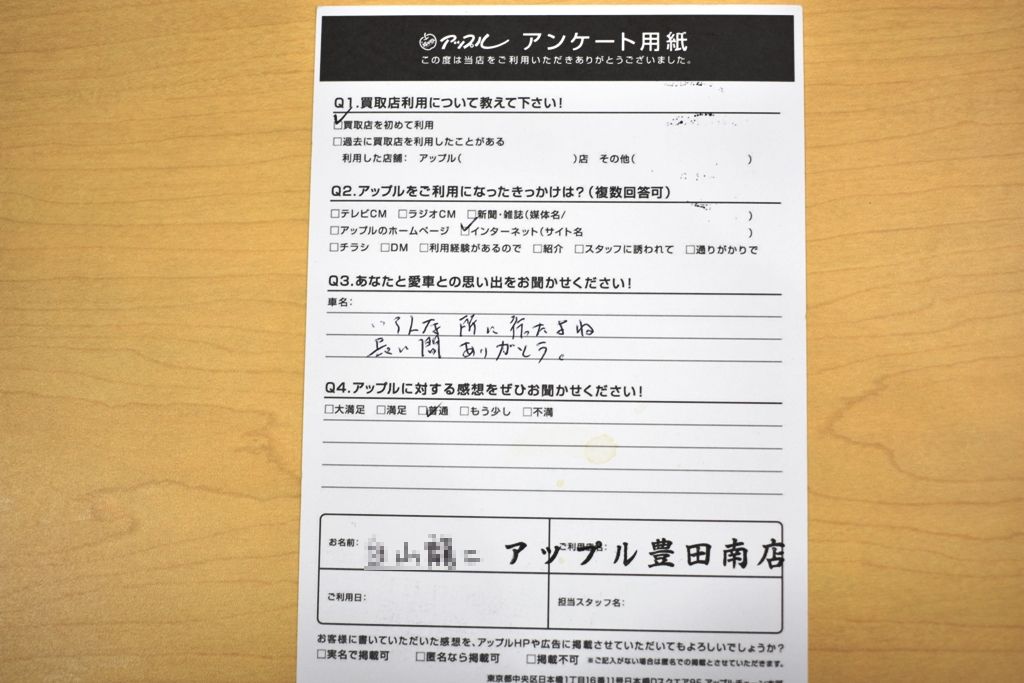 アップル アンケート用紙
この度は当店をご利用いただきありがとうございました。
Q1.買取店利用について教えて下さい!
□買取店を初めて利用
□過去に買取店を利用したことがある
利用した店舗: アップル( )店 その他( )
Q2.アップルをご利用になったきっかけは?(複数回答可)
□テレビCM □ラジオCM □新聞・雑誌(媒体名/ )
□アップルのホームページ □インターネット(サイト名 )
□チラシ □DM □利用経験があるので □紹介 □スタッフに誘われて □通りがかりで
Q3.あなたと愛車との思い出をお聞かせください!
車名:
いろんな所に行ったよね
長い間ありがとう。
Q4.アップルに対する感想をぜひお聞かせください!
□大満足 □満足 □普通 □もう少し □不満
お名前: ご利用店名: アップル豊田南店
ご利用日: 担当スタッフ名:
お客様に書いていただいた感想を、アップルHPや広告に掲載させていただいてもよろしいでしょうか?
□実名で掲載可 □匿名なら掲載可 □掲載不可 ※ご記入がない場合は匿名での掲載とさせていただきます。
東京都中央区日本橋1丁目16番11号日本橋Dスクエア